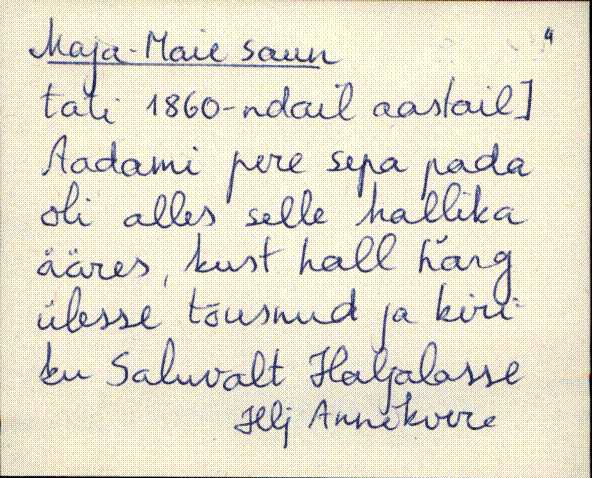 4
Maja-Maie saun
tati 1860-ndail aastail]
Aadami pere sepa pada
oli alles selle hallika
ääres, kust hall härg
ülesse tõusnud ja kiri-
ku Saluvalt Haljalasse
Hlj Annikvere